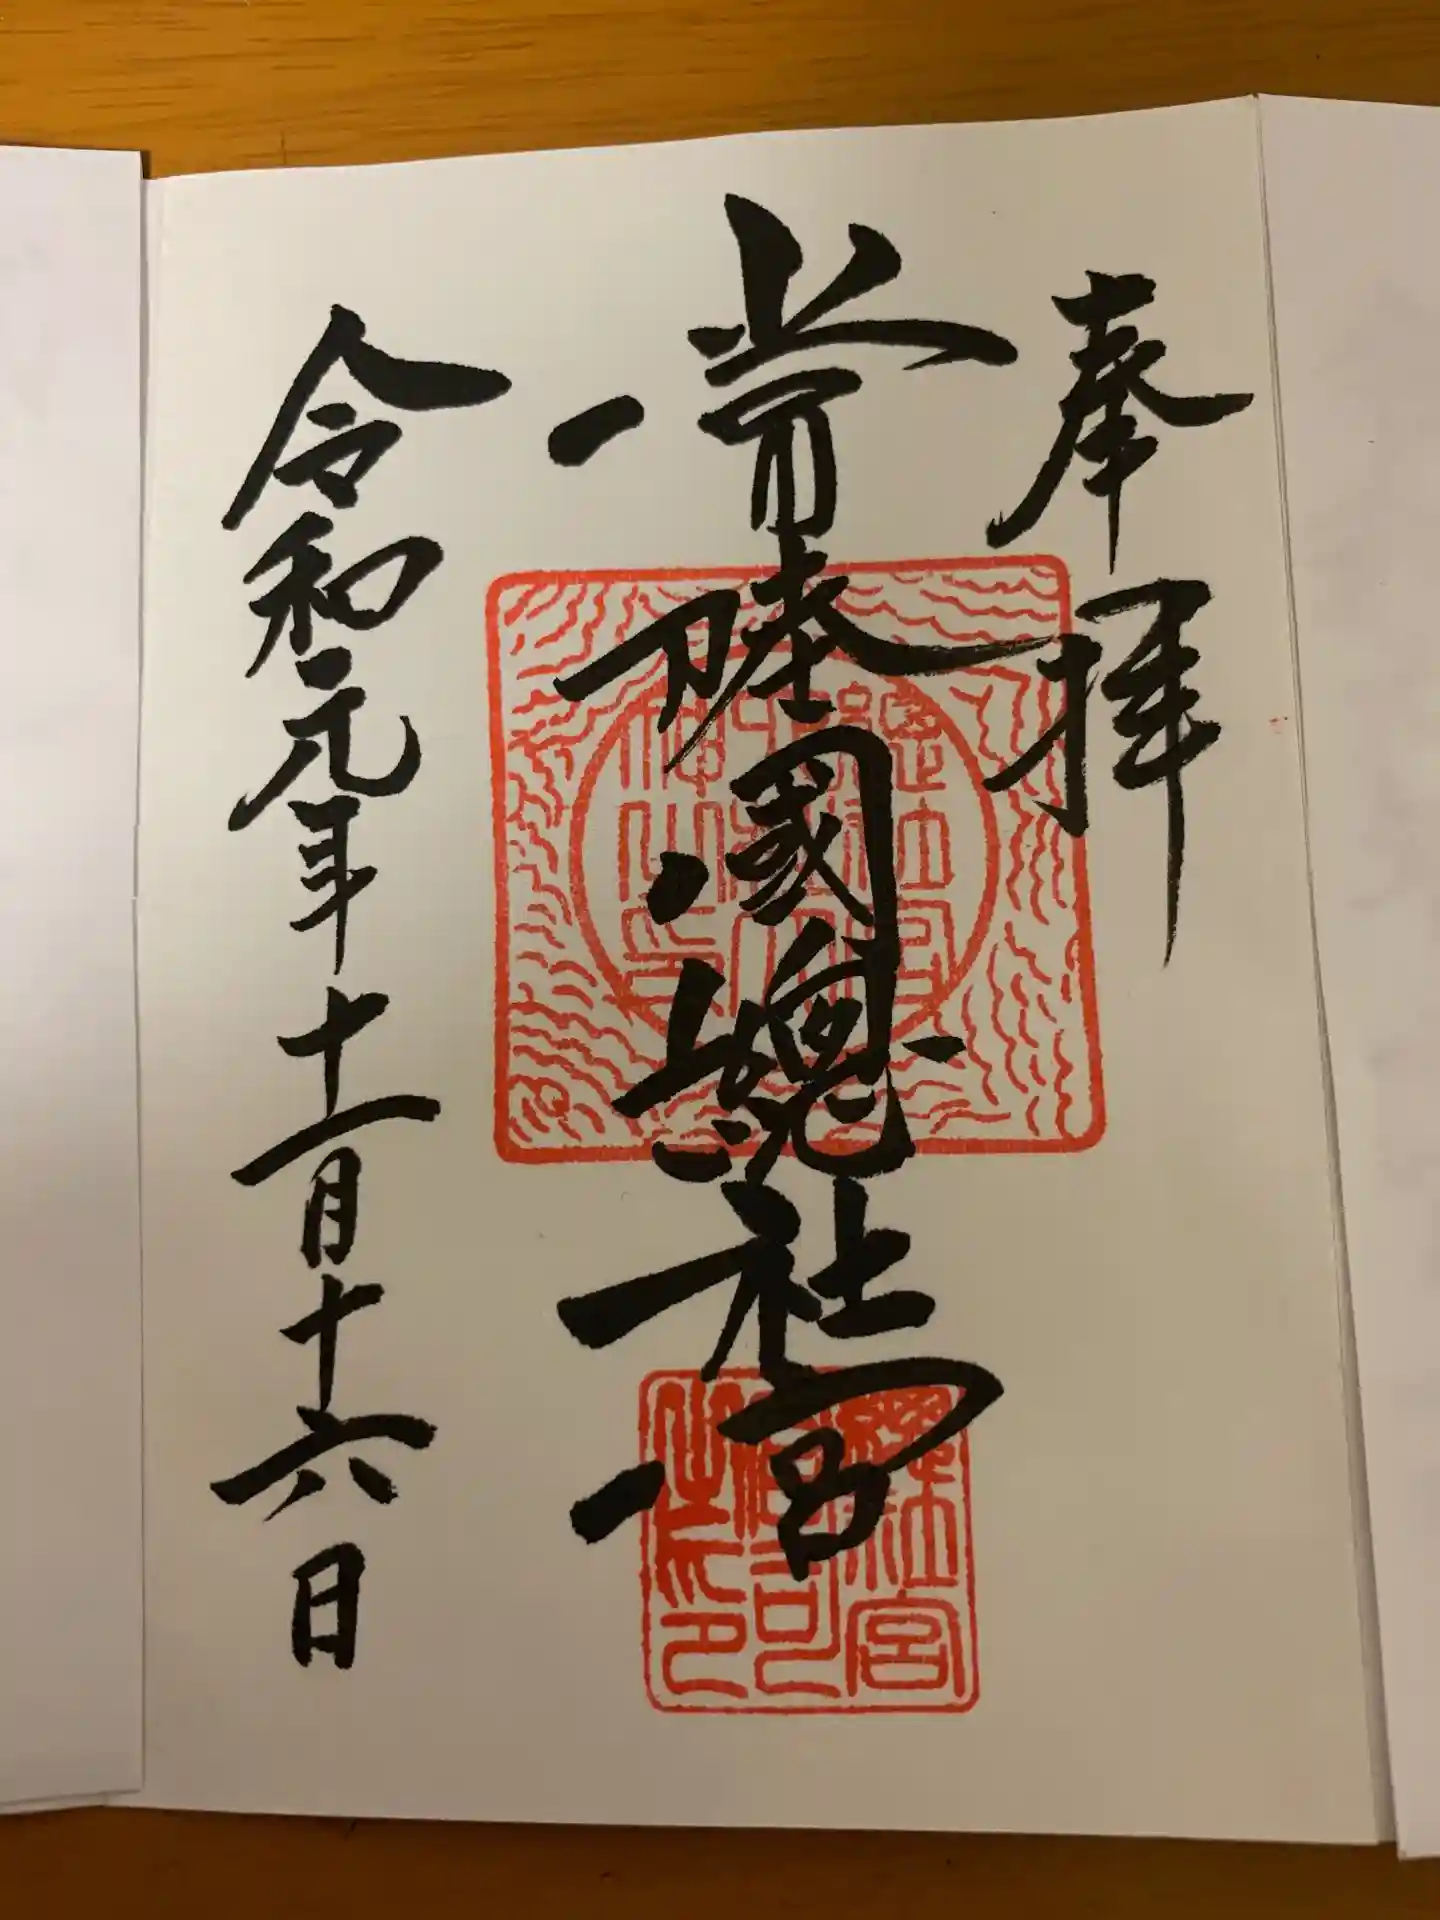 奉拝
常陸國總社宮
令和元年十一月十六日